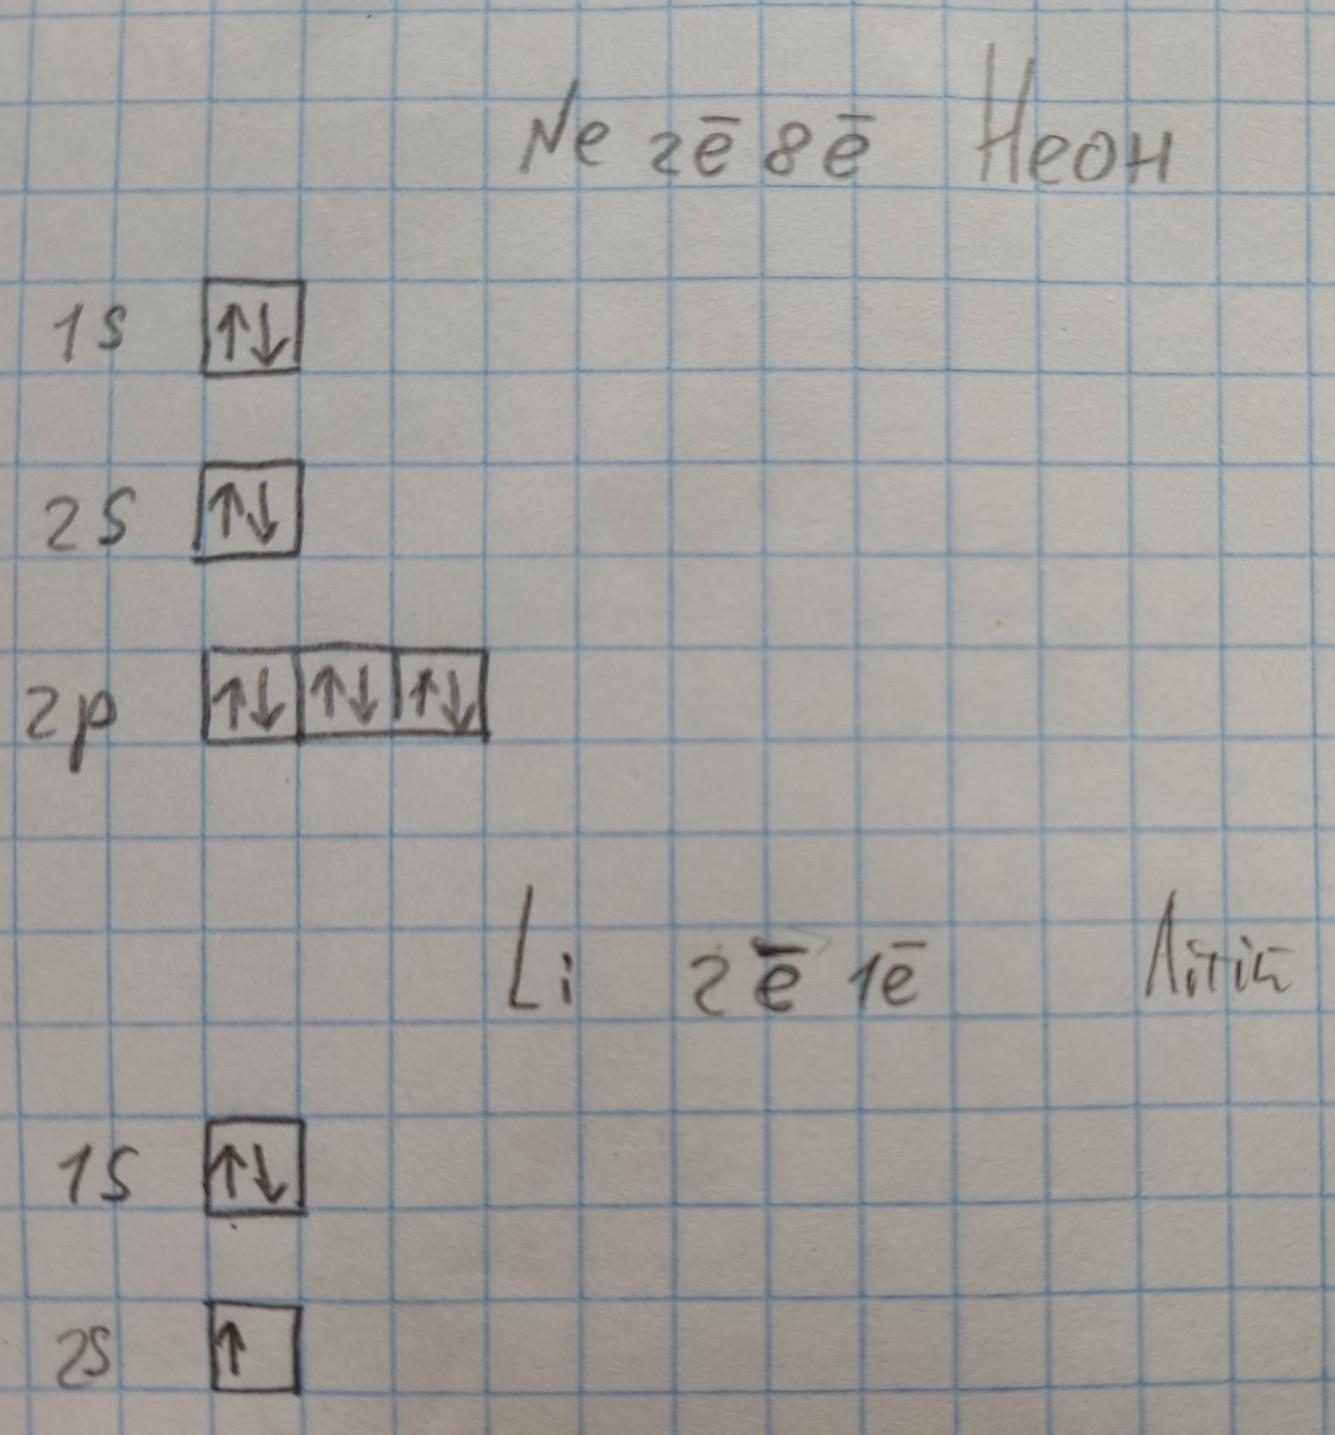 Ne 2ē 8ē Неон
1s ↑↓
2s ↑↓
2p ↑↓ ↑↓ ↑↓
Li 2ē 1ē Літій
1s ↑↓
2s ↑